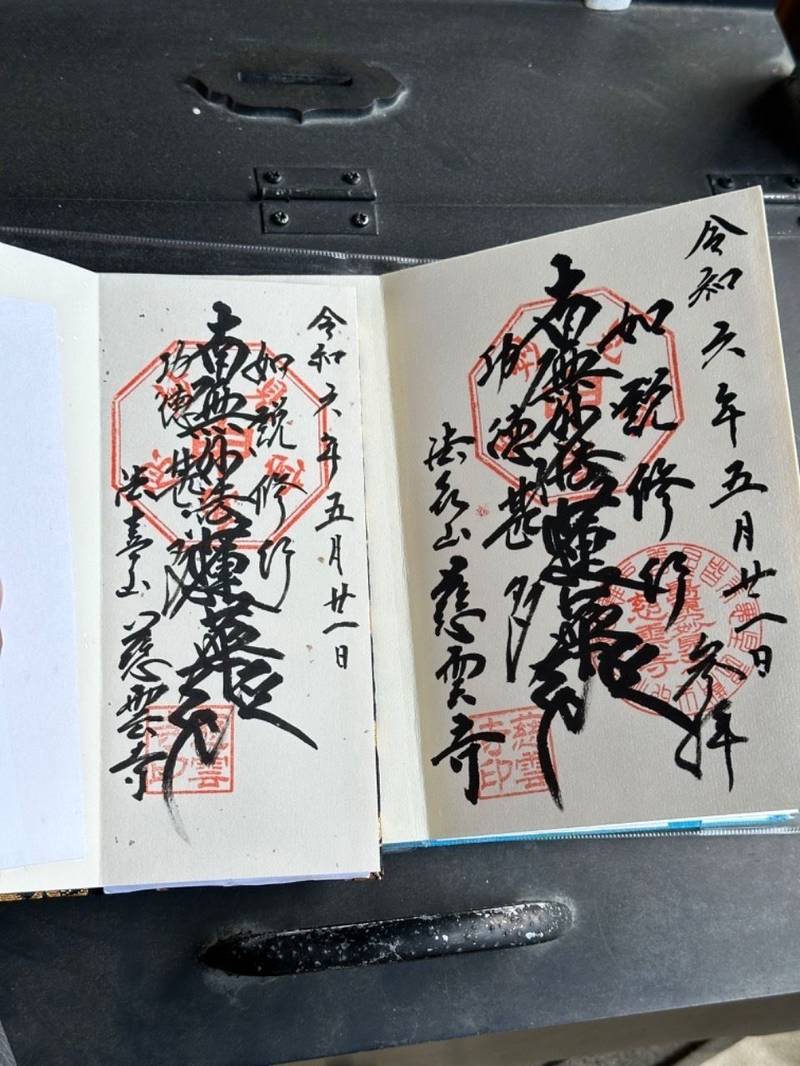 令和六年五月廿一日
如説修行
南無妙法蓮華経
功徳甚多
法喜山 慈雲寺
慈雲寺印
令和六年五月廿一日 参拝
如説修行
南無妙法蓮華経
功徳甚多
法喜山 慈雲寺
慈雲寺印